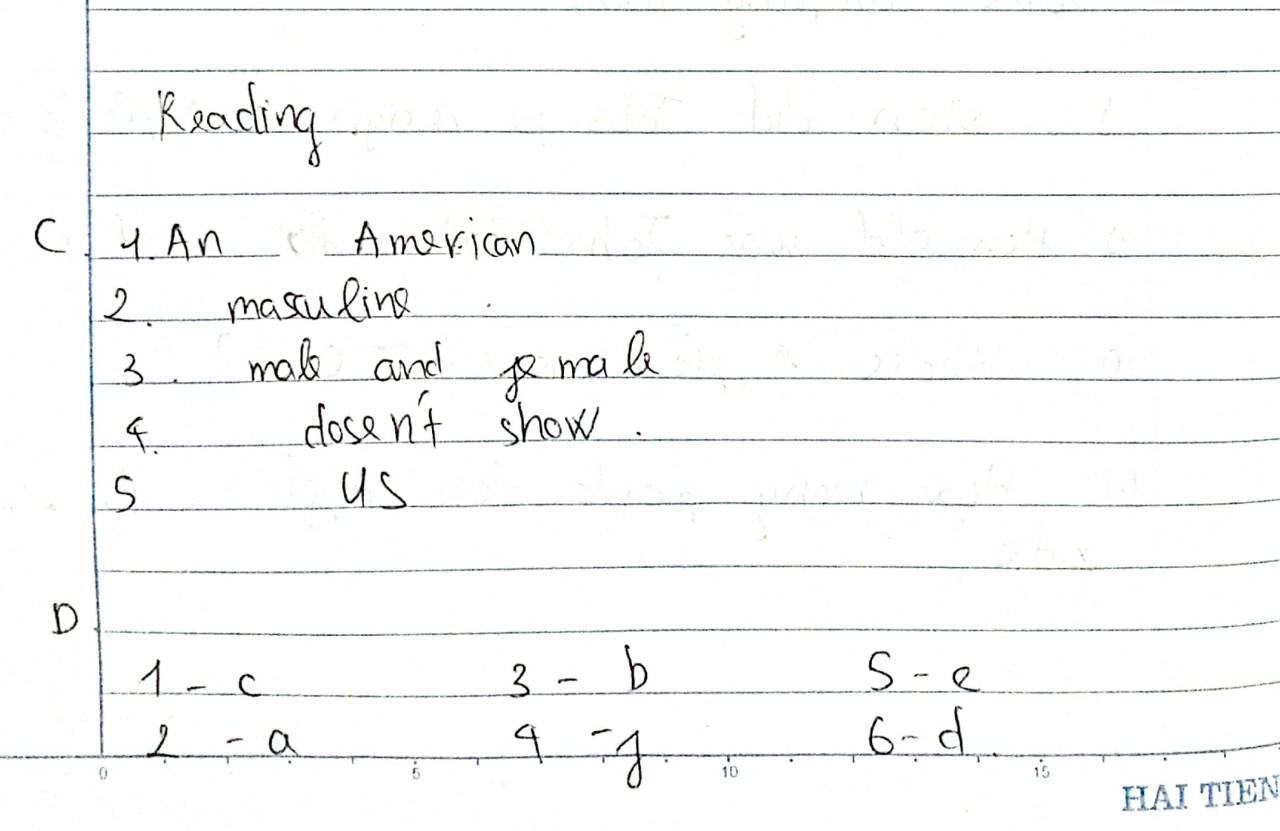 Reading
C 1. An American
2. masculine
3. male and female
4. dosen't show.
5 US
D
1 - c 3 - b 5 - e
2 - a 4 - f 6 - d.
0 5 10 15
HAI TIEN